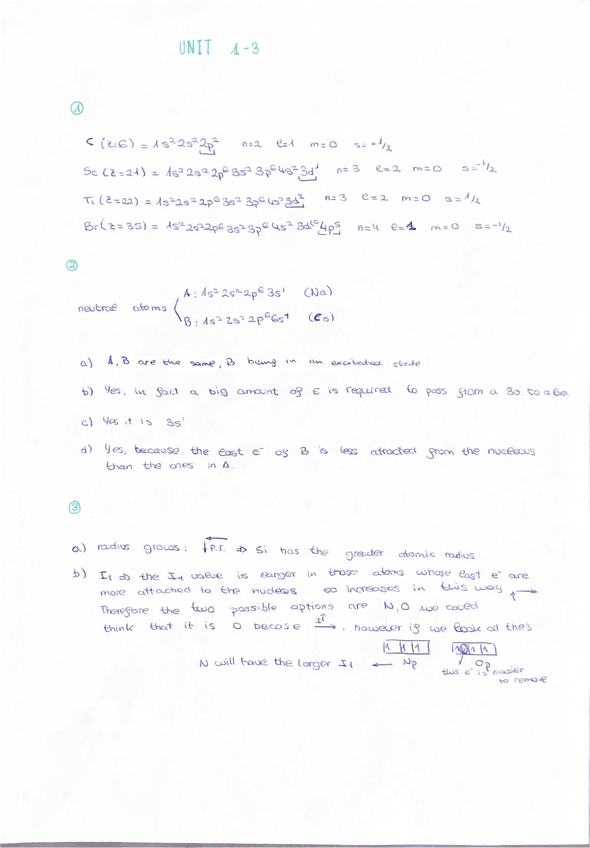 UNIT 1-3
①
C (z=6) = 1s² 2s² 2p² n=2 l=1 m=0 s=+1/2
Sc (z=21) = 1s² 2s² 2p⁶ 3s² 3p⁶ 4s² 3d¹ n=3 l=2 m=0 s=-1/2
Ti (z=22) = 1s² 2s² 2p⁶ 3s² 3p⁶ 4s² 3d² n=3 l=2 m=0 s=1/2
Br (z=35) = 1s² 2s² 2p⁶ 3s² 3p⁶ 4s² 3d¹⁰ 4p⁵ n=4 l=1 m=0 s=-1/2
②
A: 1s² 2s² 2p⁶ 3s¹ (Na)
neutral atoms
B: 1s² 2s² 2p⁶ 6s¹ (Cs)
a) A, B are the same, B being in an excitated state
b) Yes, in fact a big amount of E is required to pass from a 3s to a 6s
c) Yes it is 3s¹
d) Yes, because the last e⁻ of B is less atracted from the nucleous
than the ones in A.
③
a) radius grows: ← ↓ P.T. ⇒ Si has the greader atomic radius
b) I₁ ⇒ the I₁ value is larger in those atoms whose last e⁻ are
more attached to the nucleus so increases in this way ↑→
Therefore the two possible options are N, O we could
think that it is O becose I↑ →, however if we look at the
N will have the larger I₁ ← Np Op
this e⁻ is easier
to remove